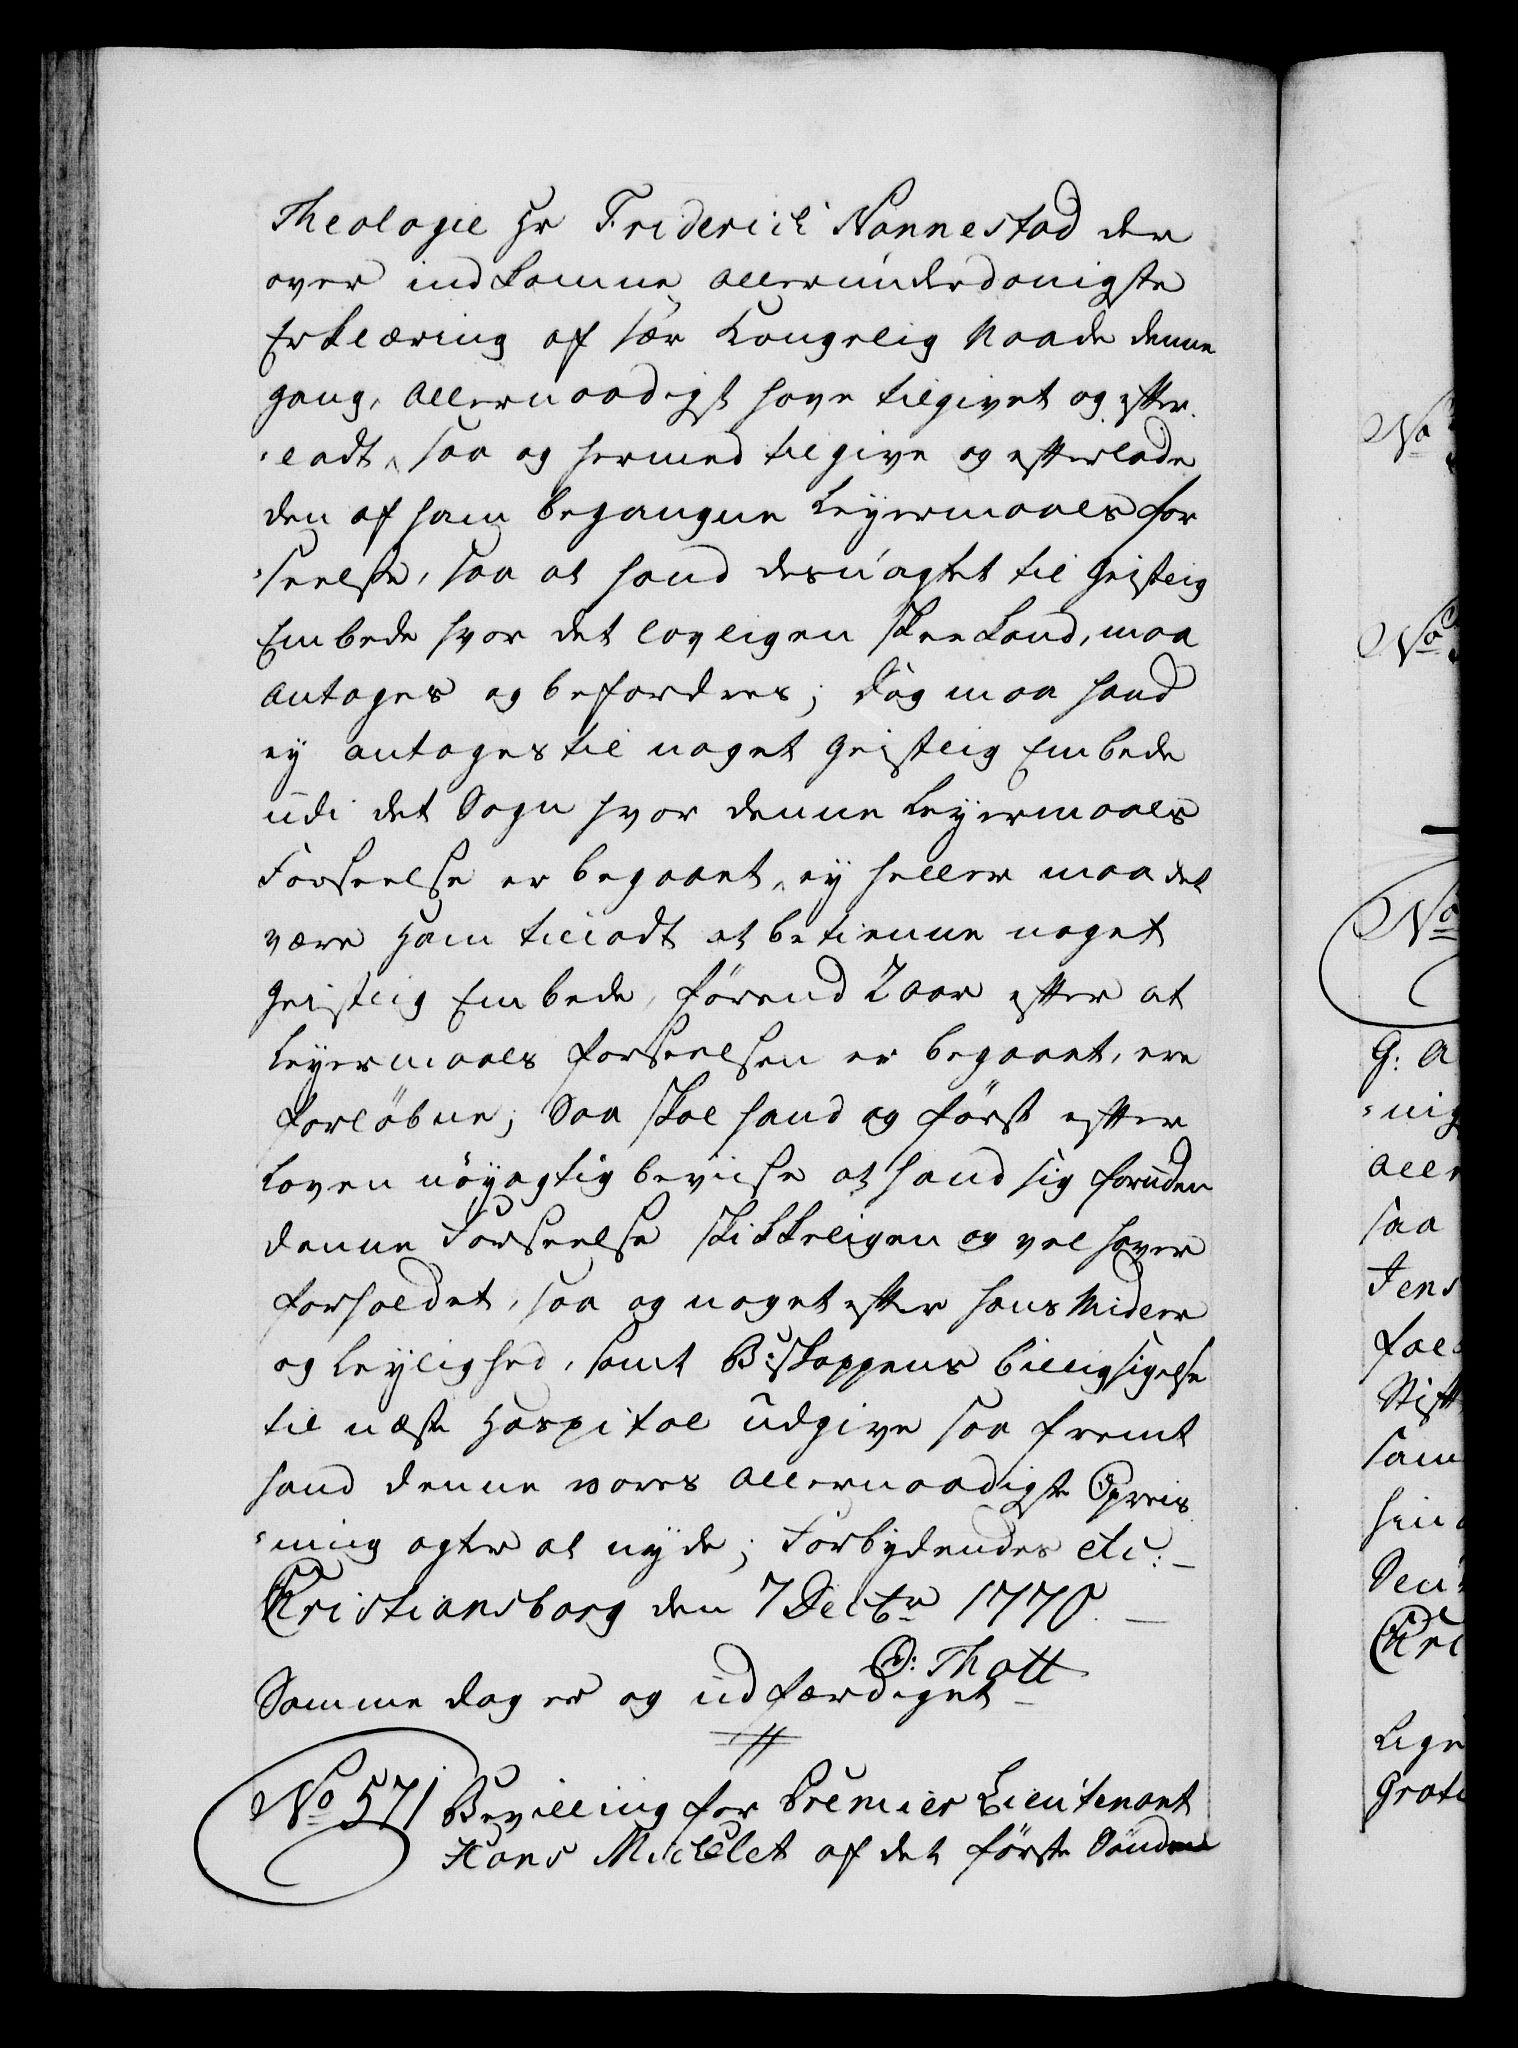 Theologie Hr Friderich Nannestad der
over indkomne allerunderdanigste
Erklæring af sær Kongelig Naade denne
gang, allernaadigst have tilgivet og efter-
-ladt, saa og hermed tilgive og efterlade
den af ham begangne Leyermaals for
-seelse, saa at hand desuagtet til Geistlig
Embede hvor det lovligen skee kand, maa
antages og befordres; dog maa hand
ey antages til noget Geistlig Embede
udi det Sogn hvor denne Leyermaals
Forseelse er begaaet, ey heller maa det
være Ham tilladt at betienne noget
Geistlig Embede, förend 2 aar efter at
Leyermaals forseelsen er begaaet, ere
forlöbne; Saa skal hand og först efter
Loven nöyagtig beviise at hand sig foruden
denne Forseelse skikkeligen og vel haver
forholdet, saa og noget efter hans Midler
og Leylighed, samt Biskoppens billigsigelse
til næste Hospital udgive saa fremt
hand denne vores allernaadigste Opreis
-ning agter at nyde; Forbydendes etc: -
Christiansborg den 7 Decbr 1770. -
O: Thott
Samme dag er og udfærdiget -
No 571 Bevilling for Premier Lieutenant
Hans Michelet af det förste Sönden
No
No
No
G: A
-nig
aller
saa
Jens
fal
Stift
sam
hin
Seu
Chri
Lige
Grati